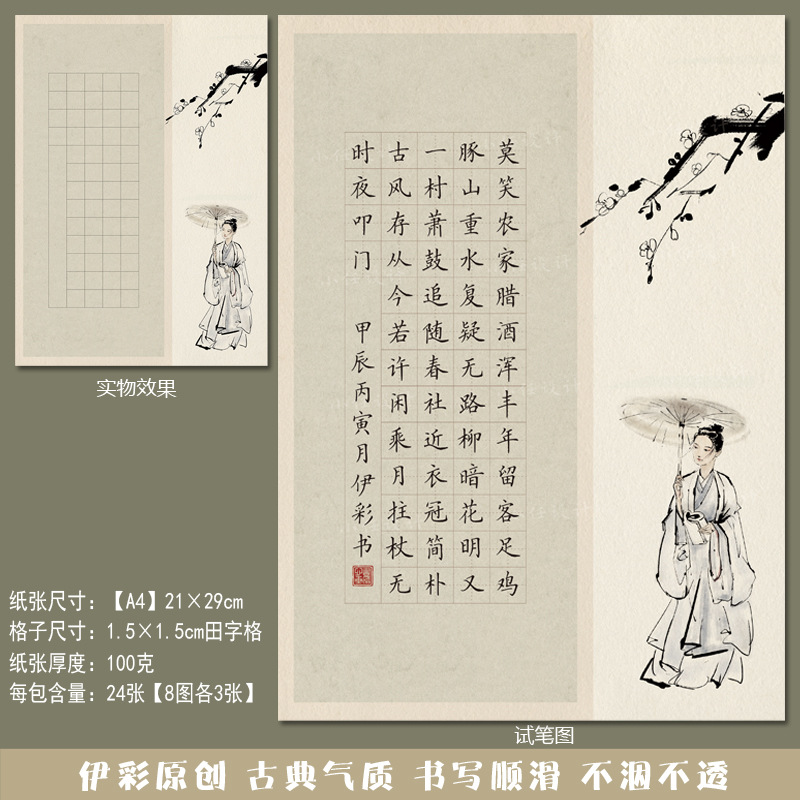 莫笑农家腊酒浑丰年留客足鸡
豚山重水复疑无路柳暗花明又
一村萧鼓追随春社近衣冠简朴
古风存从今若许闲乘月拄杖无
时夜叩门 甲辰丙寅月伊彩书
实物效果
纸张尺寸：【A4】21×29cm
格子尺寸：1.5×1.5cm田字格
纸张厚度：100克
每包含量：24张【8图各3张】
试笔图
伊彩原创 古典气质 书写顺滑 不洇不透